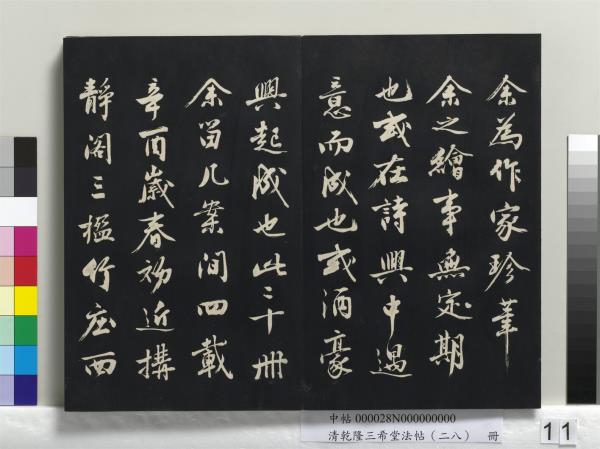 余為作家珍
余之繪事無定期
也或在詩興中遇
意而成也或酒豪
興起成也此二十冊
余留几案間四載
辛酉歲春初近搆
靜閣三楹竹庄西
中帖 000028N000000000
清乾隆三希堂法帖（二八） 冊
11